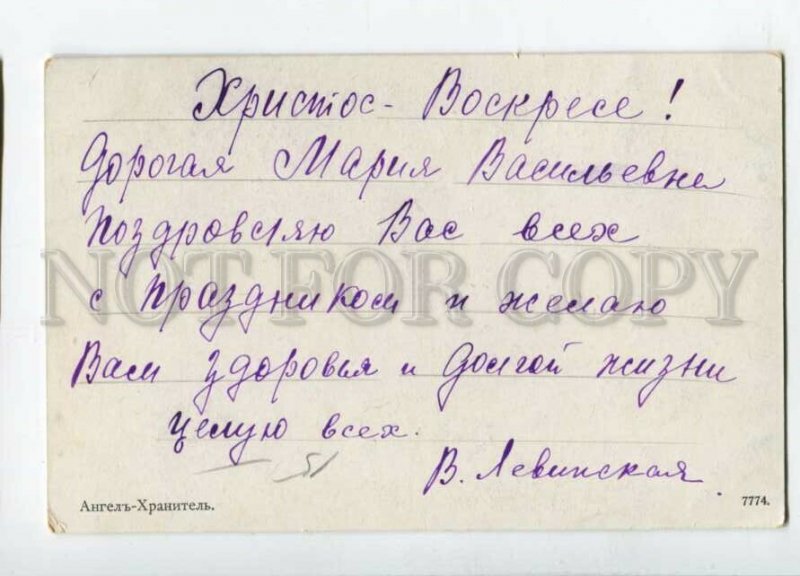 Христос - Воскресе!
Дорогая Мария Васильевна
Поздровляю Вас всех
NOT FOR COPY
с Праздником и желаю
Вам здоровья и долгой жизни
целую всех.
51
В. Левинская.
Ангелъ-Хранитель.
7774.